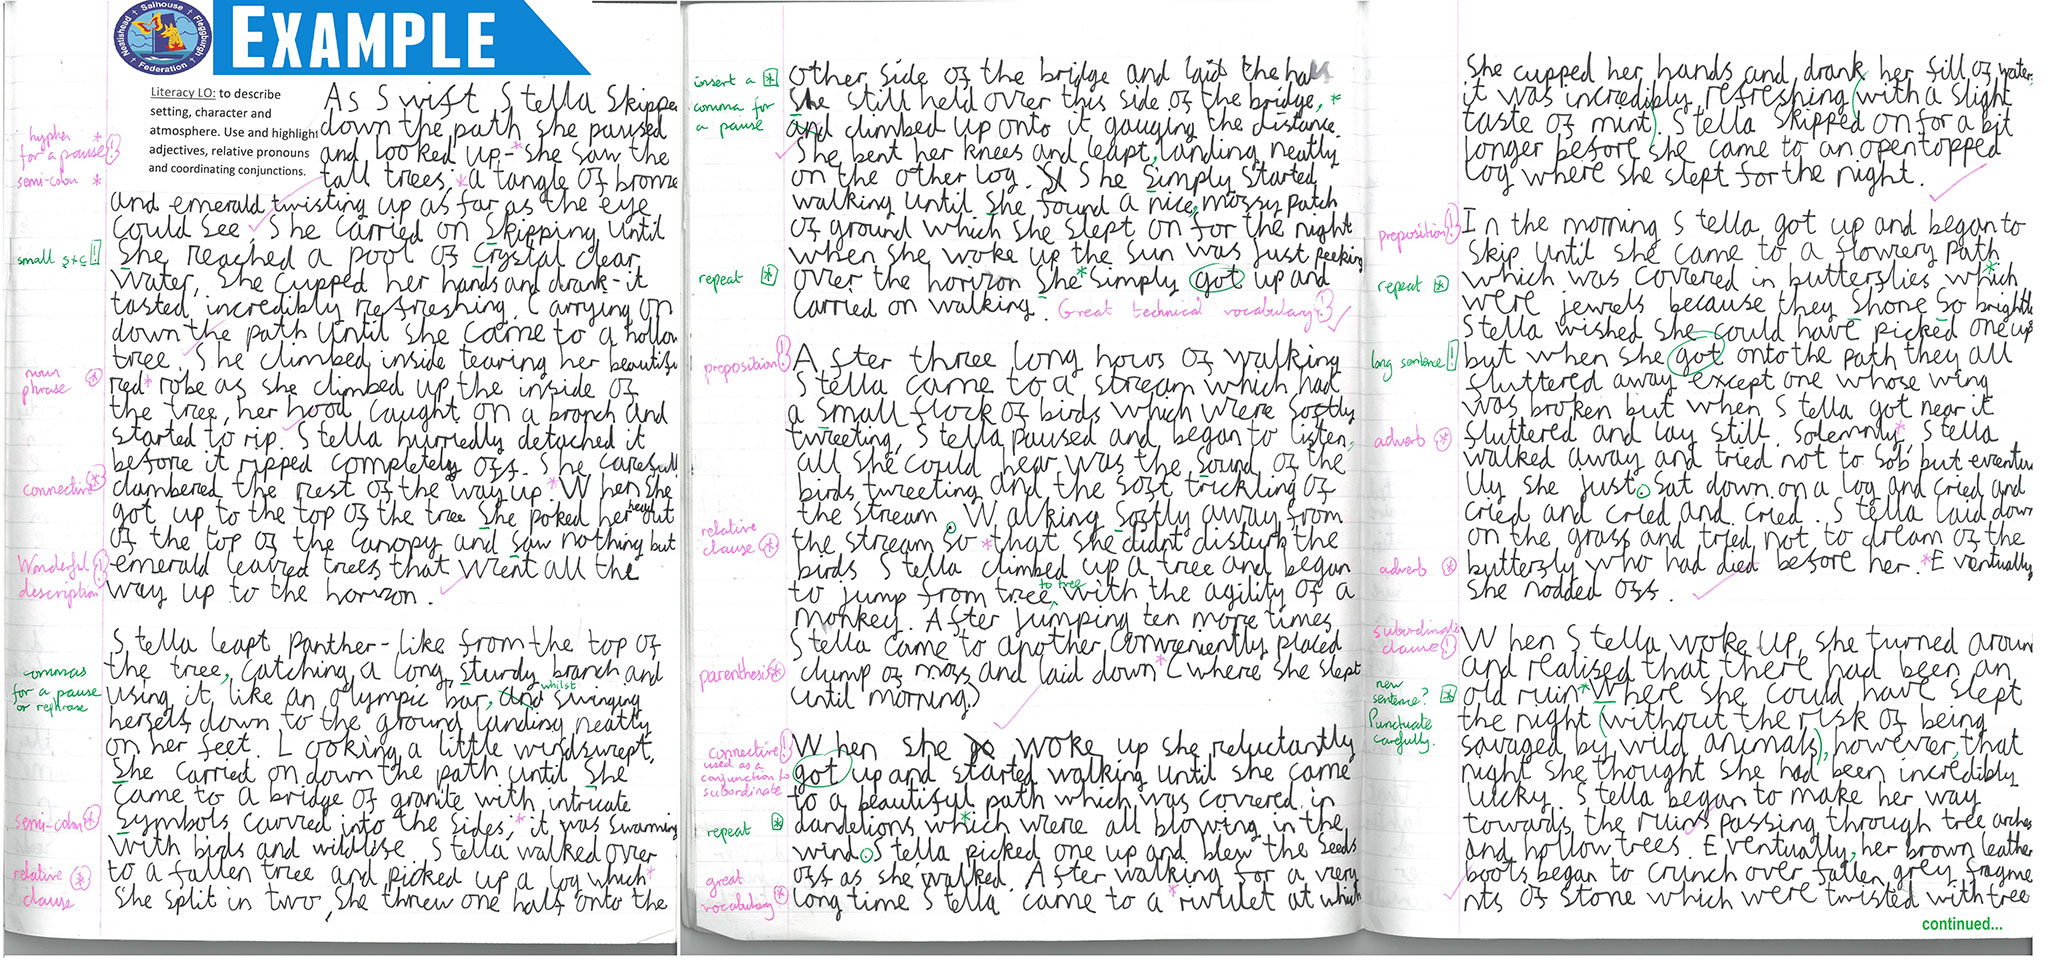 Neatishead Salhouse Fleggburgh Federation
EXAMPLE
Literacy LO: to describe
setting, character and
atmosphere. Use and highlight
adjectives, relative pronouns
and coordinating conjunctions.
As Swift Stella Skippe
down the path she paused
and looked up-* she saw the
tall trees;* a tangle of bronze
and emerald twisting up as far as the eye
could see. She carried on skipping until
She reached a pool of Crystal clear
water, She cupped her hands and drank- it
tasted incredibly refreshing. Carrying on
down the path until she came to a hollow
tree. She climbed inside tearing her beautifu
red* robe as she climbed up the inside of
the tree, her hood caught on a branch and
started to rip. Stella hurriedly detached it
before it ripped completely off. She carefull
clambered the rest of the way up.* When she
got up to the top of the tree She poked her head out
of the top of the canopy and saw nothing but
emerald leaved trees that went all the
way up to the horizon.
Stella leapt panther-like from the top of
the tree, catching a long, sturdy branch and
using it, like an olympic bar, and whilst swinging
herself down to the ground landing neatly
on her feet. Looking a little windswept,
She carried on down the path until She
came to a bridge of granite with intricate
Symbols carved into the sides;* it was swarming
with birds and wildlife. Stella walked over
to a fallen tree and picked up a log which*
She split in two, She threw one half onto the
hyphen *
for a pause !
semi-colon *
small s + c !
noun *
phrase
connective *
Wonderful !
description
commas
for a pause
or rephrase
semi-colon *
relative *
clause
other side of the bridge and laid the half
She still held over this side of the bridge,*
and climbed up onto it gauging the distance.
She bent her knees and leapt, landing neatly
on the other log. She simply started
walking until she found a nice, mossy patch
of ground which she slept on for the night
when she woke up the sun was just peeking
over the horizon She* simply got up and
carried on walking. Great technical vocabulary !
After three long hours of walking
Stella came to a stream which had
a small flock of birds which were softly
tweeting, Stella paused and began to listen,
all she could hear was the sound of the
birds tweeting and the soft trickling of
the stream. Walking softly away from
the stream so *that she didnt disturb the
birds Stella climbed up a tree and began
to jump from tree to tree, with the agility of a
monkey. After jumping ten more times
Stella came to another, conveniently placed
clump of moss and laid down* (where she slept
until morning)
When she woke up she reluctantly
got up and started walking until she came
to a beautiful path which was covered in
dandelions which* were all blowing in the
wind. Stella picked one up and blew the seeds
off as she walked. After walking for a very
long time Stella came to a *rivulet at which
insert a *
comma for
a pause
repeat *
preposition !
relative
clause *
parenthesis *
connective !
used as a
conjunction to
subordinate
repeat *
great
vocabulary *
She cupped her hands and drank her fill of water
it was incredibly refreshing (with a slight
taste of mint). Stella skipped on for a bit
longer before she came to an open topped
log where she slept for the night.
In the morning Stella got up and began to
skip until she came to a flowery path
which was covered in butterflies which*
were jewels because they shone so brightly
Stella wished she could have picked one up
but when she got onto the path they all
fluttered away except one whose wing
was broken but when Stella got near it
fluttered and lay still. Solemnly*, Stella
walked away and tried not to sob, but eventua
lly she just. sat down on a log and cried and
cried and cried and cried. Stella laid down
on the grass and tried not to dream of the
butterfly who had died before her. *Eventually,
she nodded off.
When Stella woke up, she turned aroun
and realised that there had been an
old ruin* Where she could have slept
the night (without the risk of being
savaged by wild animals), however, that
night she thought she had been incredibly
lucky. Stella began to make her way
towards the ruins passing through tree arches
and hollow trees. Eventually, her brown leather
boots began to crunch over fallen, grey fragme
nts of stone which were twisted with tree
preposition !
repeat *
long sentence !
adverb *
adverb *
subordinate
clause !
new
sentence? *
Punctuate
carefully.
continued...